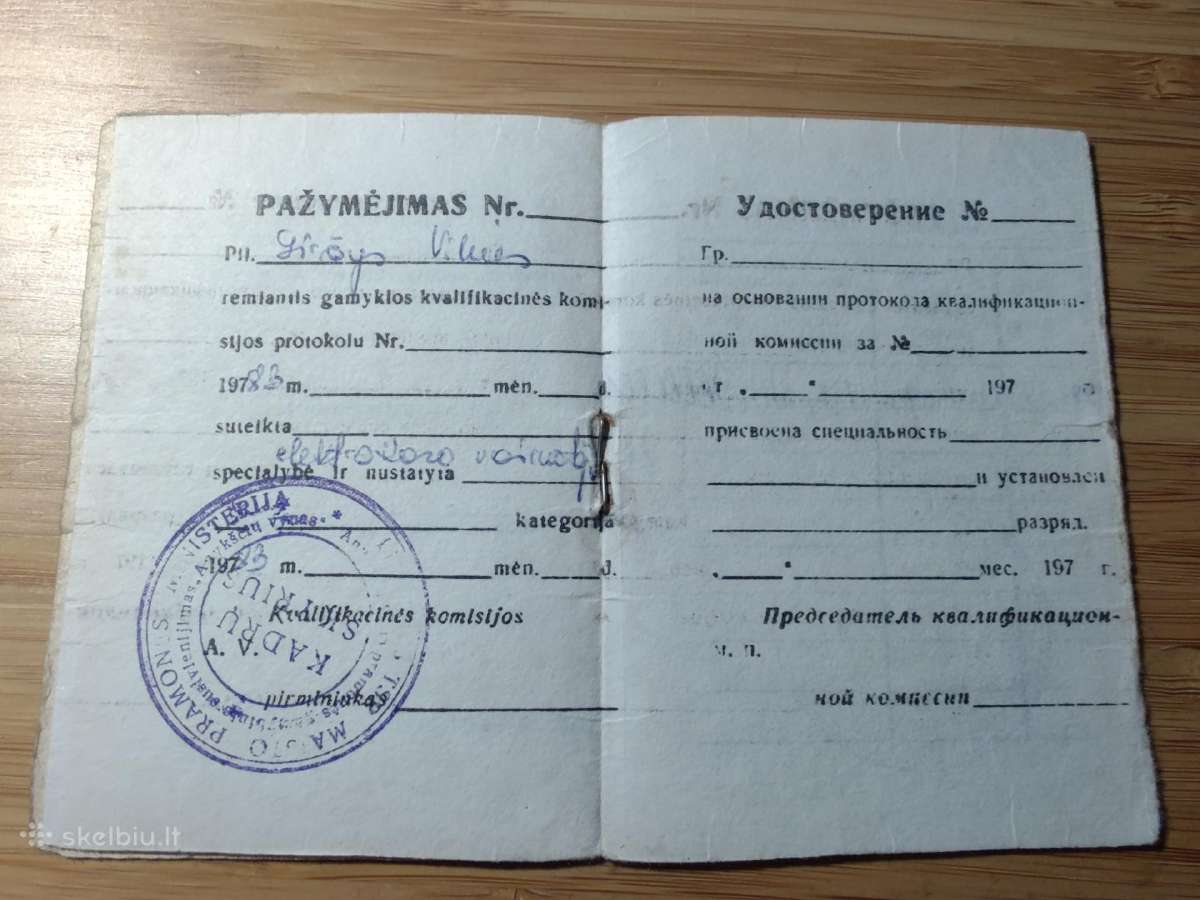 PAŽYMĖJIMAS Nr.
Pil.
remiantis gamyklos kvalifikacinės komi-
sijos protokolu Nr.
197 83 m. mėn. d.
suteikta
elektrokaro
specialybė ir nustatyta
kategorija
197 83 m. mėn. d.
Kvalifikacinės komisijos
A. V.
pirmininkas
MAISTO PRAMONĖS MINISTERIJA
KADRŲ
SKYRIUS
Удостоверение №
Гр.
на основании протокола квалификацион-
ной комиссии за №
от „ “ 197 г.
присвоена специальность
и установлен
разряд.
„ “ мес. 197 г.
Председатель квалификацион-
м. п.
ной комиссии
skelbiu.lt